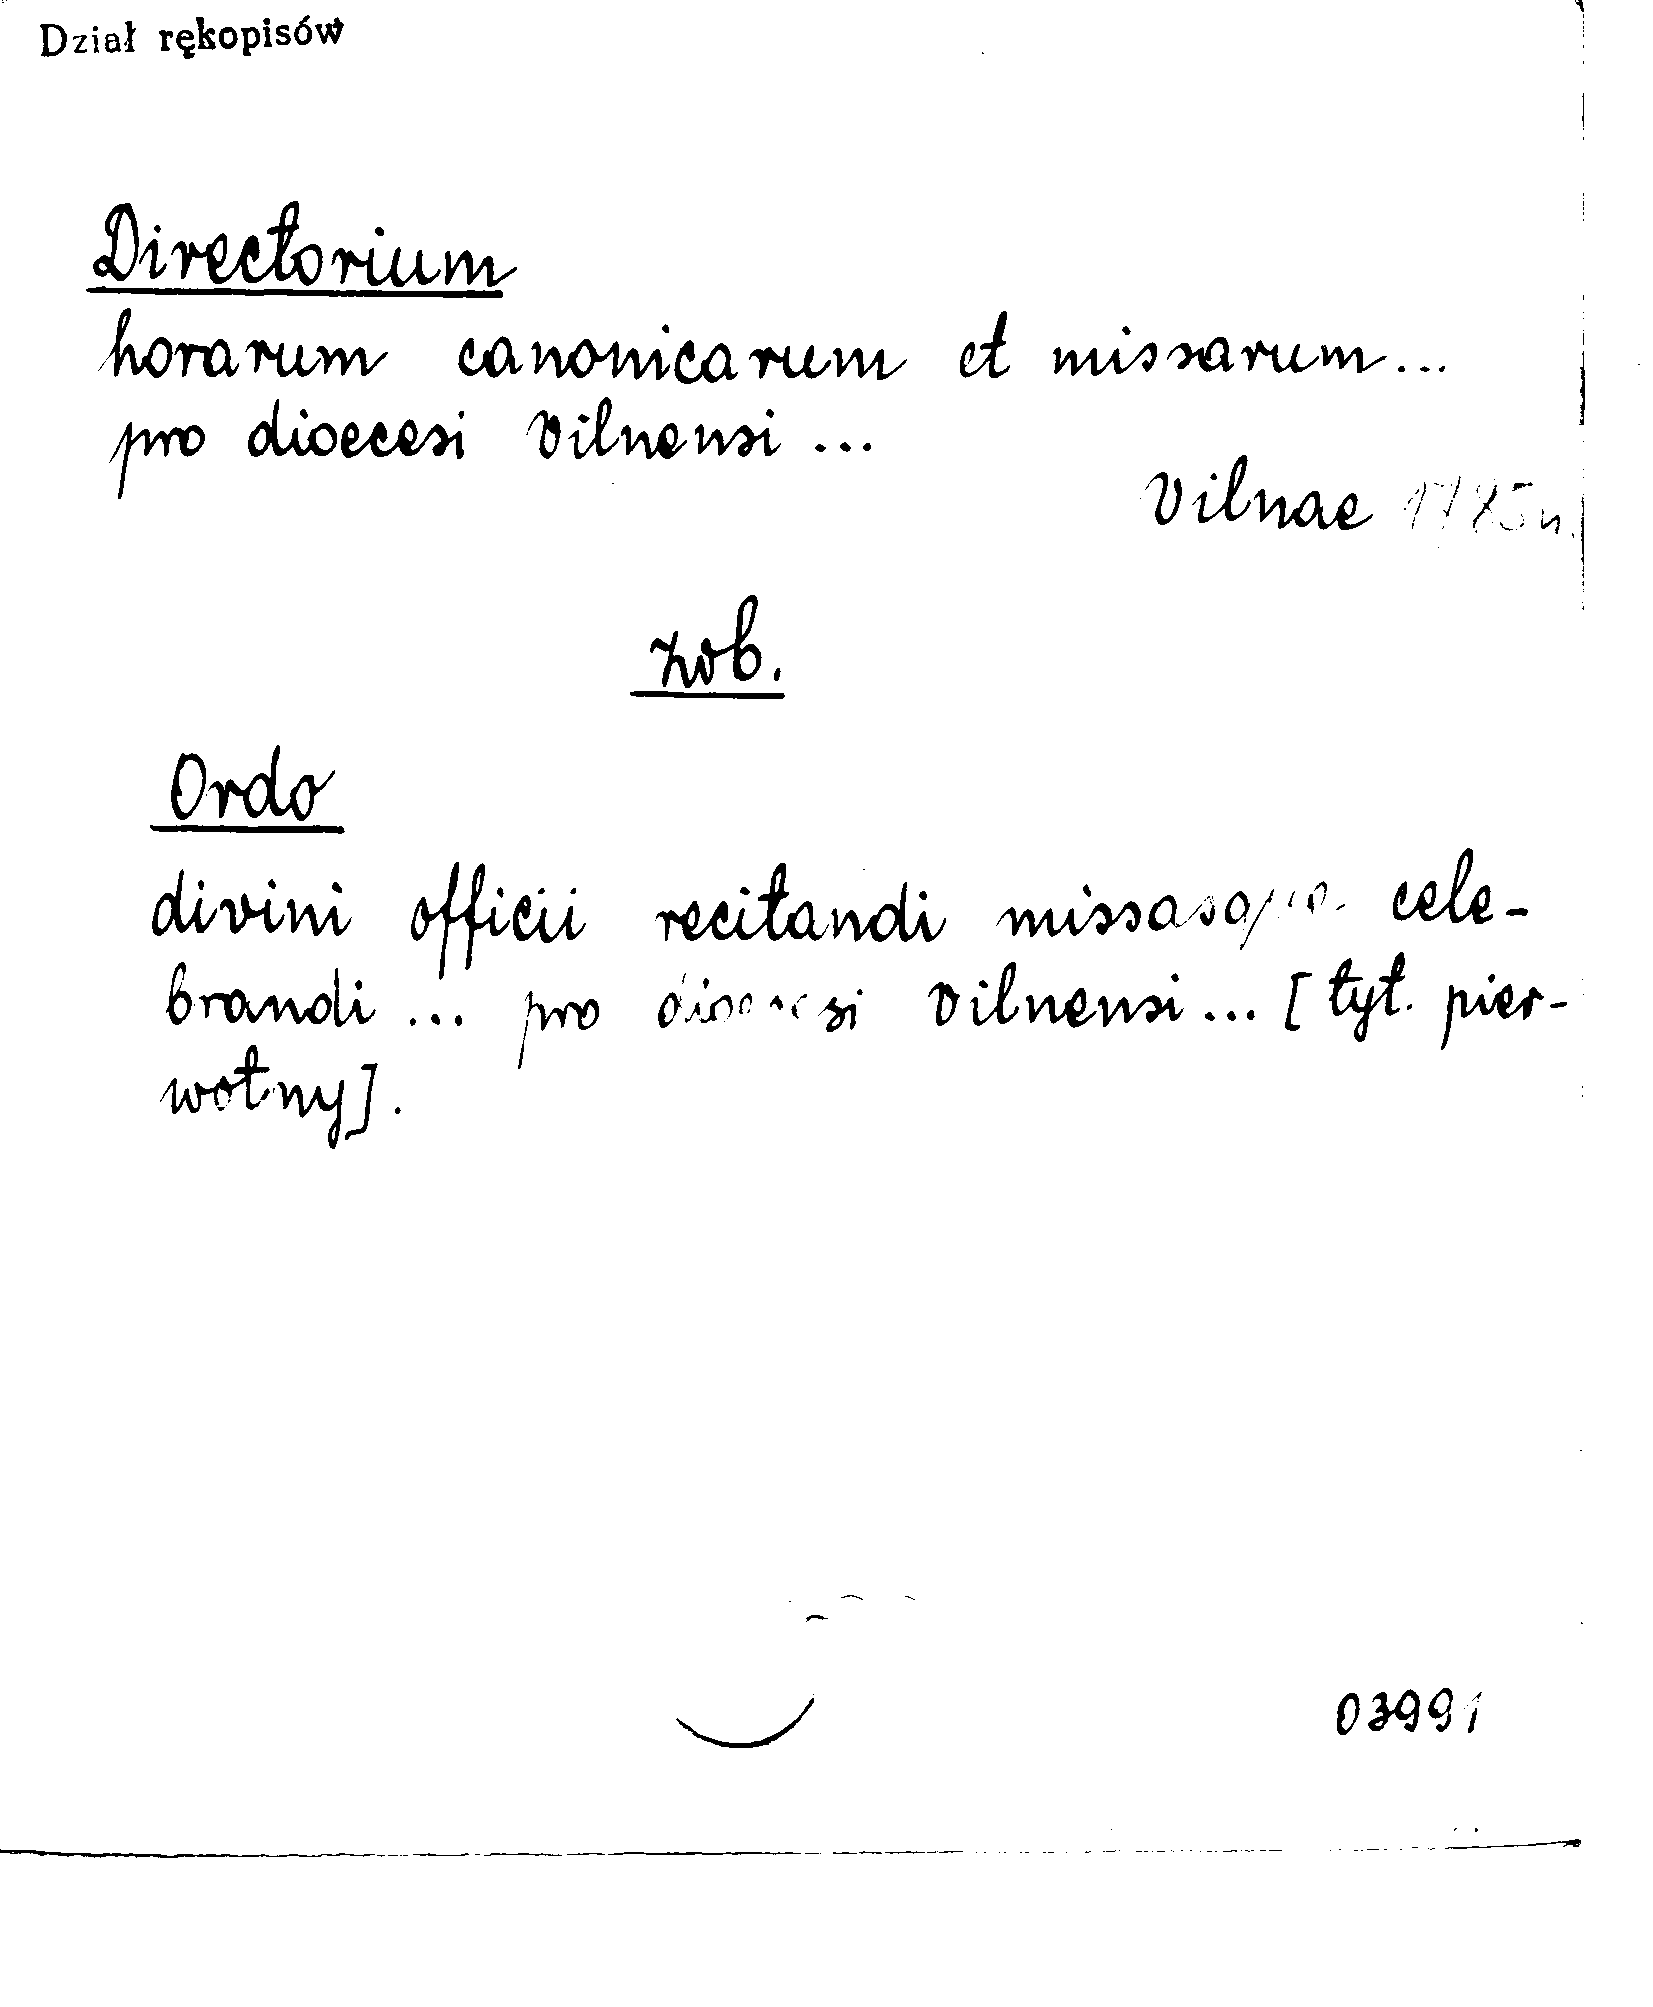 Dział rękopisów
Directorium
horarum canonicarum et missarum...
pro dioecesi Vilnensi ...
Vilnae 1785 n.
zob.
Ordo
divini officii recitandi missasque cele-
brandi ... pro dioecesi Vilnensi... [tyt. pier-
wotny].
03991